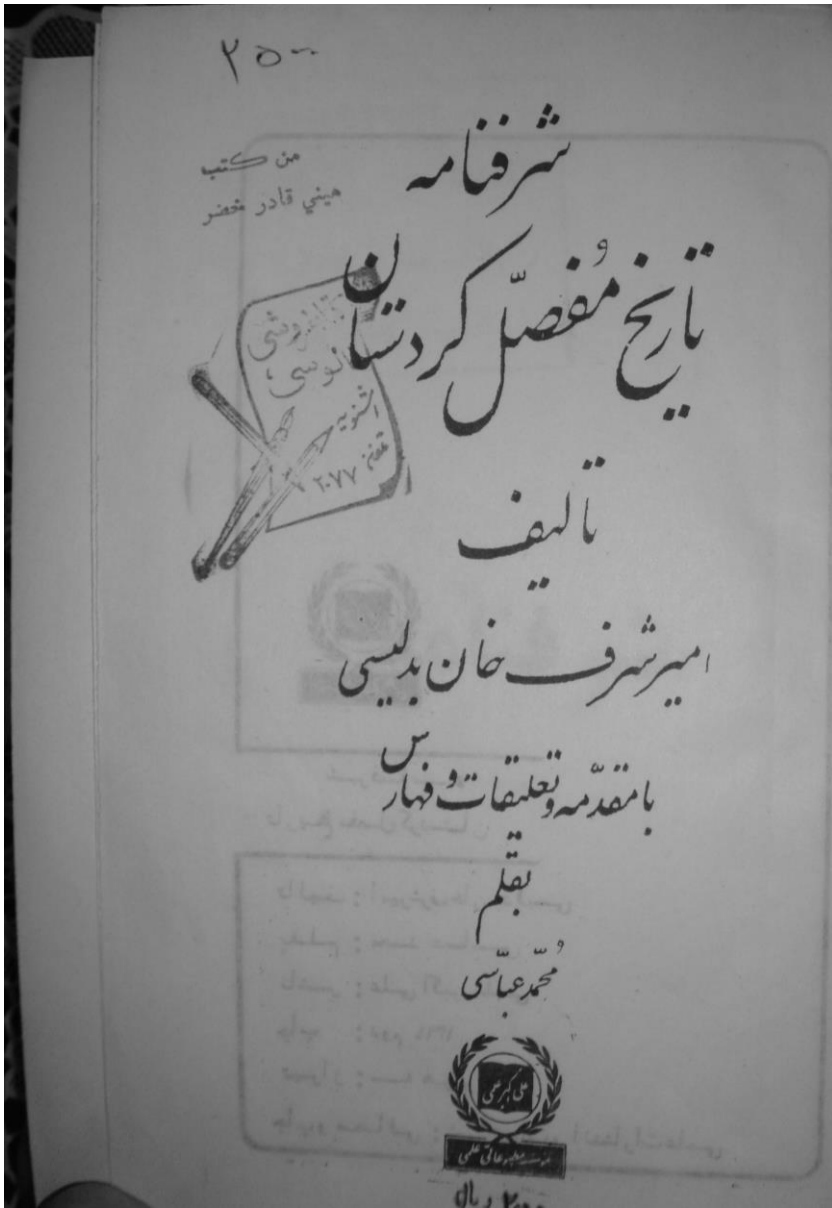 ۲۵۰۰
شرفنامه
من كتب
ميني قادر خضر
تاریخ مُفصّل کردستان
کتابفروشی
اشنویه
تلفن
۲۰۷۷
تالیف
امیر شرف خان بدلیسی
با مقدّمه و تعلیقات و فهارس
بقلم
محمّد عبّاسی
علی اکبر علمی
موسسه مطبوعاتی علمی
ریال